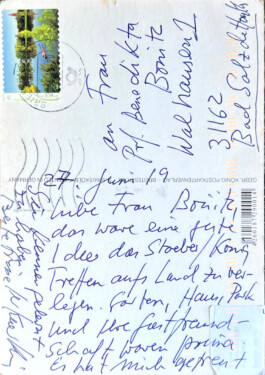 an Frau
Prof. Benedikta
Bonitz
Walhausen 1
31162
Bad Salzdetfurth
27. Juni 19
Liebe Frau Bonitz
das war eine gute
Idee das Stoeber/König
Treffen aufs Land zu ver-
legen. Garten, Haus, Park
und Ihre Gastfreund-
schaft waren prima
Es hat mich gefreut
Sie kennen gelernt
zu haben